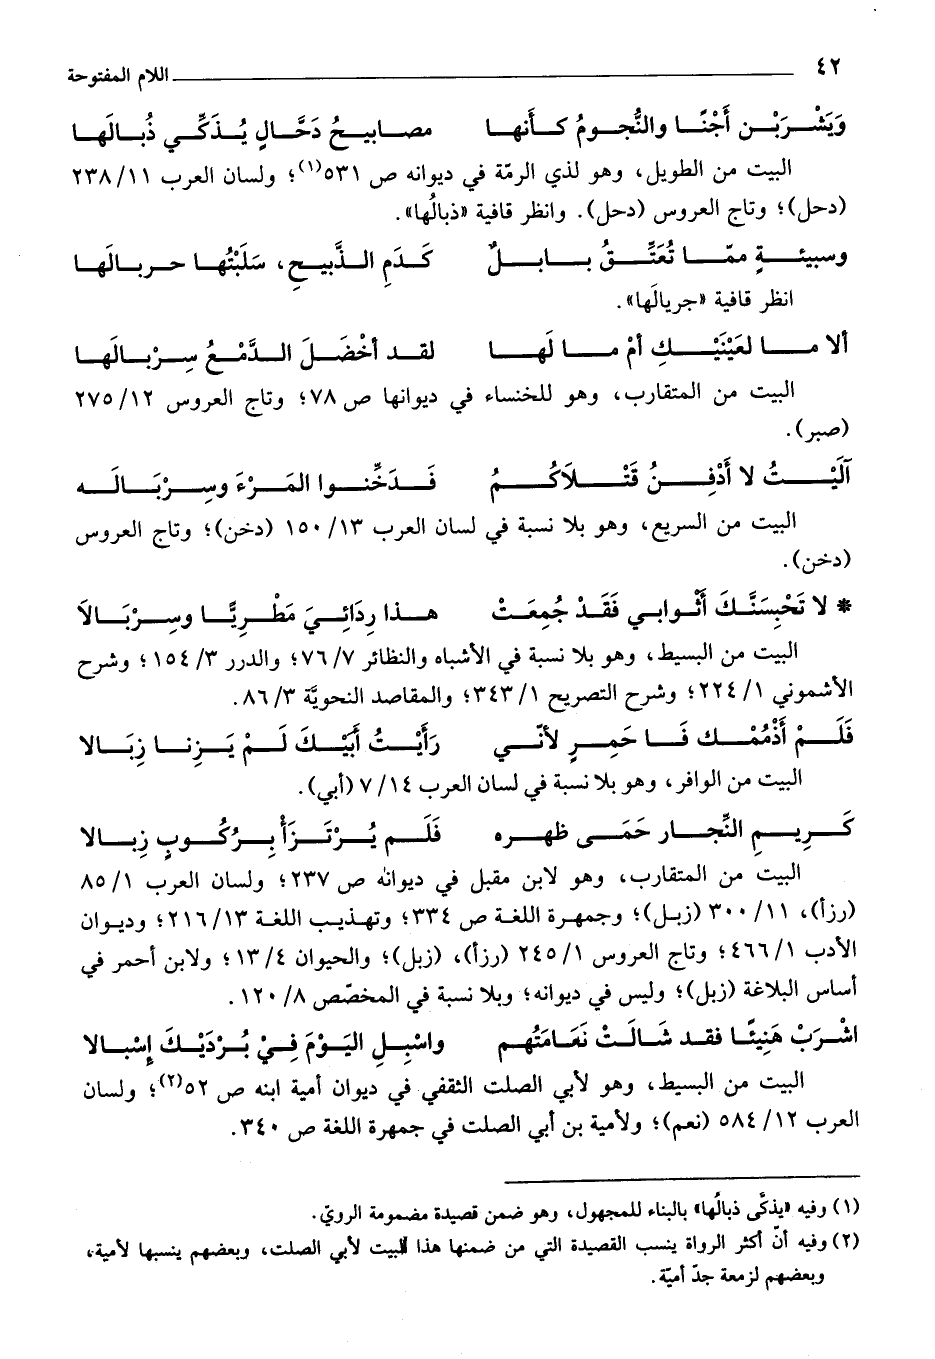 ٤٢ اللام المفتوحة
وَيَشْرَبْن أَجْنًا والنُّجومُ كأَنها مصابيحُ دَحَّالٍ يُذَكِّي ذُبالَها
البيت من الطويل، وهو لذي الرمّة في ديوانه ص ٥٣١(١)؛ ولسان العرب ١١/ ٢٣٨
(دحل)؛ وتاج العروس (دحل). وانظر قافية «ذبالُها».
وسبيئةٍ ممّا تُعَتِّقُ بابلٌ كَدَمِ الذَّبيحِ، سَلَبْتُها حربالَها
انظر قافية «جريالَها».
ألا ما لعَيْنَيْكِ أمْ ما لَها لقد أخْضَلَ الدَّمْعُ سِرْبالَها
البيت من المتقارب، وهو للخنساء في ديوانها ص ٧٨؛ وتاج العروس ١٢/ ٢٧٥
(صبر).
آلَيْتُ لا أَدْفِنُ قَتْلاكُمُ فَدَخِّنوا المَرْءَ وسِرْبَالَه
البيت من السريع، وهو بلا نسبة في لسان العرب ١٣/ ١٥٠ (دخن)؛ وتاج العروس
(دخن).
* لا تَحْبِسَنَّكَ أَثْوابي فَقَدْ جُمِعَتْ هذا رِدَائِيَ مَطْرِيًّا وسِرْبَالاَ
البيت من البسيط، وهو بلا نسبة في الأشباه والنظائر ٧/ ٧٦؛ والدرر ٣/ ١٥٤؛ وشرح
الأشموني ١/ ٢٢٤؛ وشرح التصريح ١/ ٣٤٣؛ والمقاصد النحويَّة ٣/ ٨٦.
فَلَمْ أَذْمُمْك فَا حَمِرٍ لأنّي رَأَيْتُ أَبَيْكَ لَمْ يَزِنا زِبَالا
البيت من الوافر، وهو بلا نسبة في لسان العرب ١٤/ ٧ (أبي).
كَريمِ النِّجار حَمَى ظهره فَلَم يُرْتَزَأْ بِرُكُوبٍ زِبالا
البيت من المتقارب، وهو لابن مقبل في ديوانه ص ٢٣٧؛ ولسان العرب ١/ ٨٥
(رزأ)، ١١/ ٣٠٠ (زبل)؛ وجمهرة اللغة ص ٣٣٤؛ وتهذيب اللغة ١٣/ ٢١٦؛ وديوان
الأدب ١/ ٤٦٦؛ وتاج العروس ١/ ٢٤٥ (رزأ)، (زبل)؛ والحيوان ٤/ ١٣؛ ولابن أحمر في
أساس البلاغة (زبل)؛ وليس في ديوانه؛ وبلا نسبة في المخصّص ٨/ ١٢٠.
اشْرَبْ هَنِيئًا فقد شَالَتْ نَعَامَتُهم واسْبِلِ اليَوْمَ فِيْ بُرْدَيْكَ إسْبالا
البيت من البسيط، وهو لأبي الصلت الثقفي في ديوان أمية ابنه ص ٥٢(٢)؛ ولسان
العرب ١٢/ ٥٨٤ (نعم)؛ ولأمية بن أبي الصلت في جمهرة اللغة ص ٣٤٠.
(١) وفيه «يذكَّى ذبالُها» بالبناء للمجهول، وهو ضمن قصيدة مضمومة الرويّ.
(٢) وفيه أنّ أكثر الرواة ينسب القصيدة التي من ضمنها هذا البيت لأبي الصلت، وبعضهم ينسبها لأمية،
وبعضهم لزمعة جدّ أميّة.